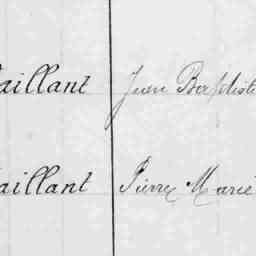 aillant Jean Baptiste
aillant Pierre Marie